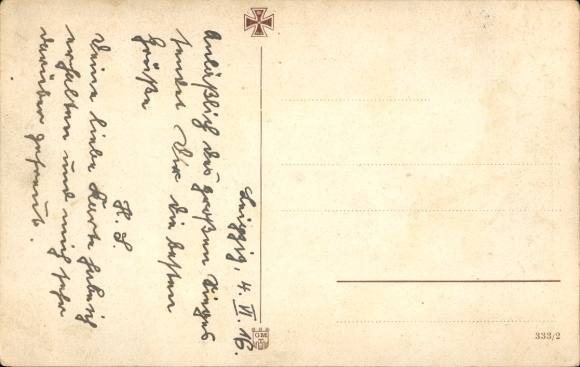 Leipzig, 4. VI. 16.
Anläßlich des großen Sieges
sendet Dir die besten
Grüße
H. S.
Deine liebe Karte habe ich
erhalten und mich sehr
darüber gefreut.
GM
333/2